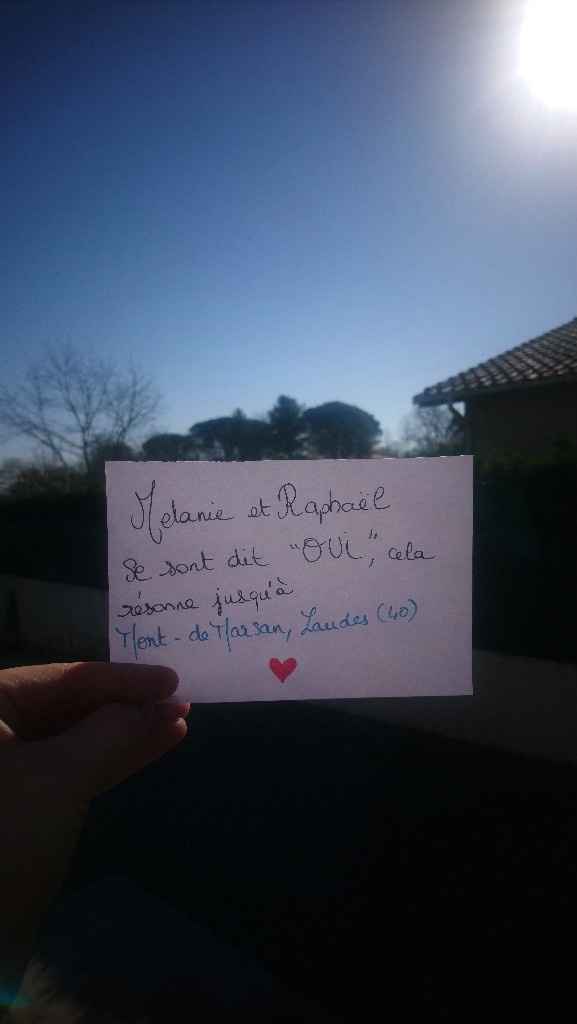 Melanie et Raphaël
Se sont dit "OUi", cela
résonne jusqu'à
Mont-de Marsan, Landes (40)